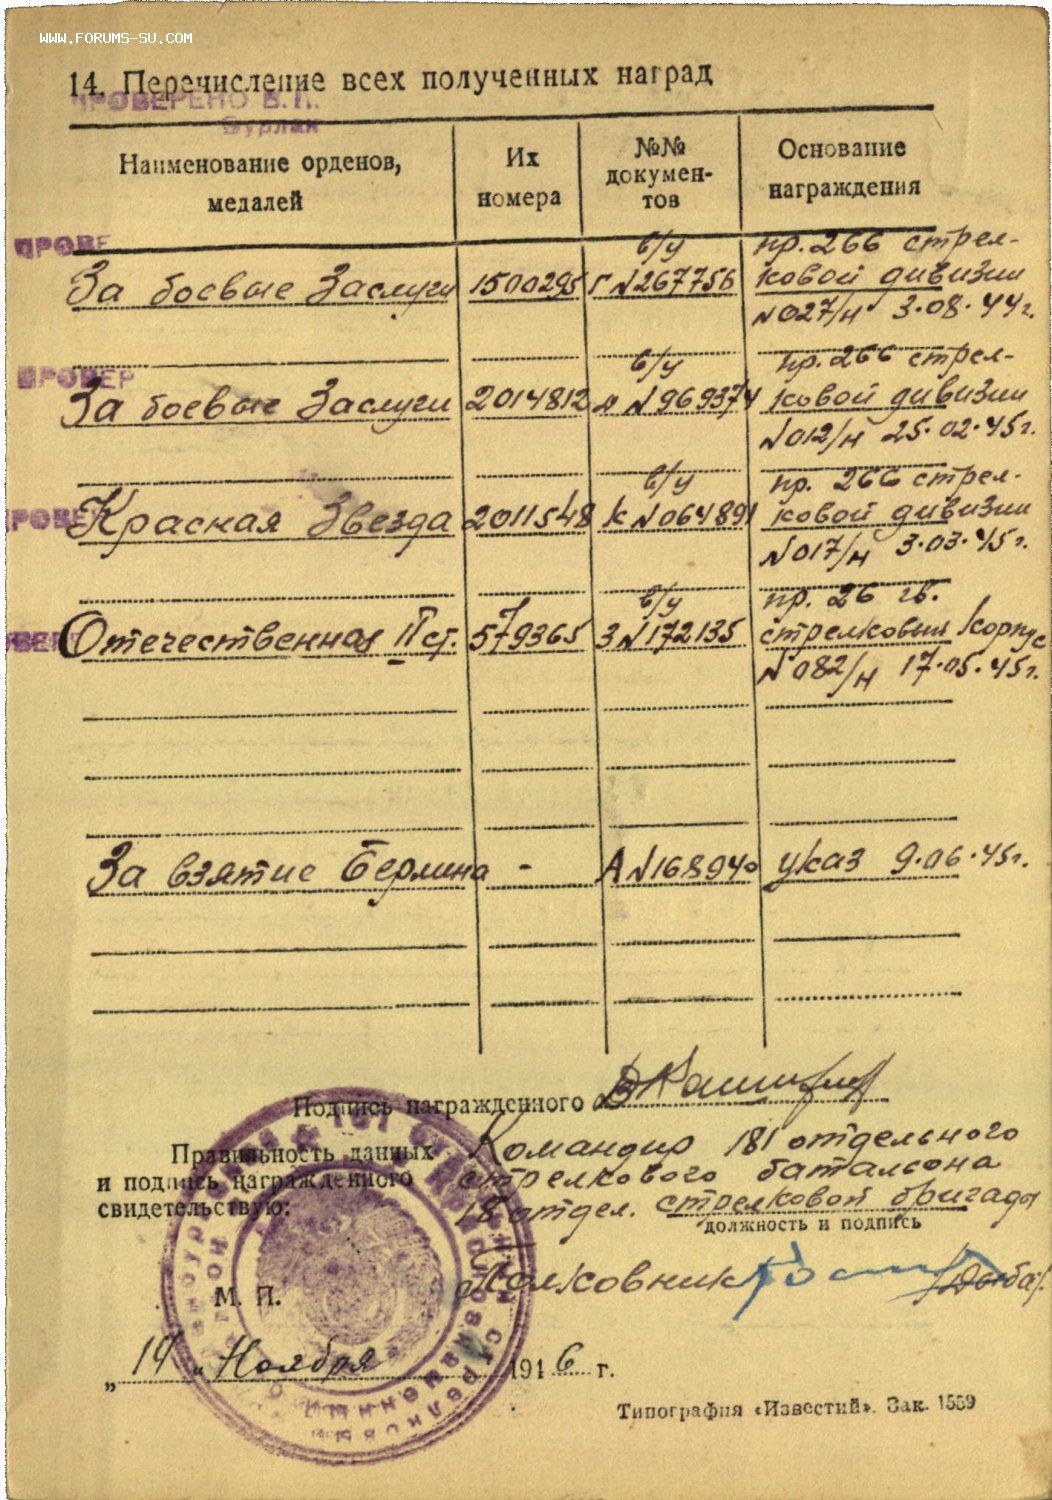 WWW.FORUMS-SU.COM
14. Перечисление всех полученных наград
ПРОВЕРЕНО В.П.
Бурлак
Наименование орденов, медалей
Их номера
№№ документов
Основание награждения
ПРОВЕ
в/у
пр. 266 стрел-
За боевые Заслуги 1500295 Г №267756 ковой дивизии
№027/н 3.08.44г.
ПРОВЕР
в/у
пр. 266 стрел-
За боевые Заслуги 2014812 Д №969374 ковой дивизии
№012/н 25.02.45г.
в/у
пр. 266 стрел-
ПРОВЕР
Красная Звезда 2011548 К №064891 ковой дивизии
№017/н 3.03.45г.
в/у
пр. 26 гв.
Отечественная II ст. 579365 З №172135 стрелковый Корпус
№082/н 17.05.45г.
За взятие Берлина - А №168940 указ 9.06.45г.
Подпись награжденного
Правильность данных
и подпись награжденного
свидетельствую:
Командир 181 отдельного
стрелкового батальона
18 отдел. стрелковой бригады
должность и подпись
Полковник
М. П.
„19„ Ноября 1946 г.
Типография «Известий». Зак. 1559